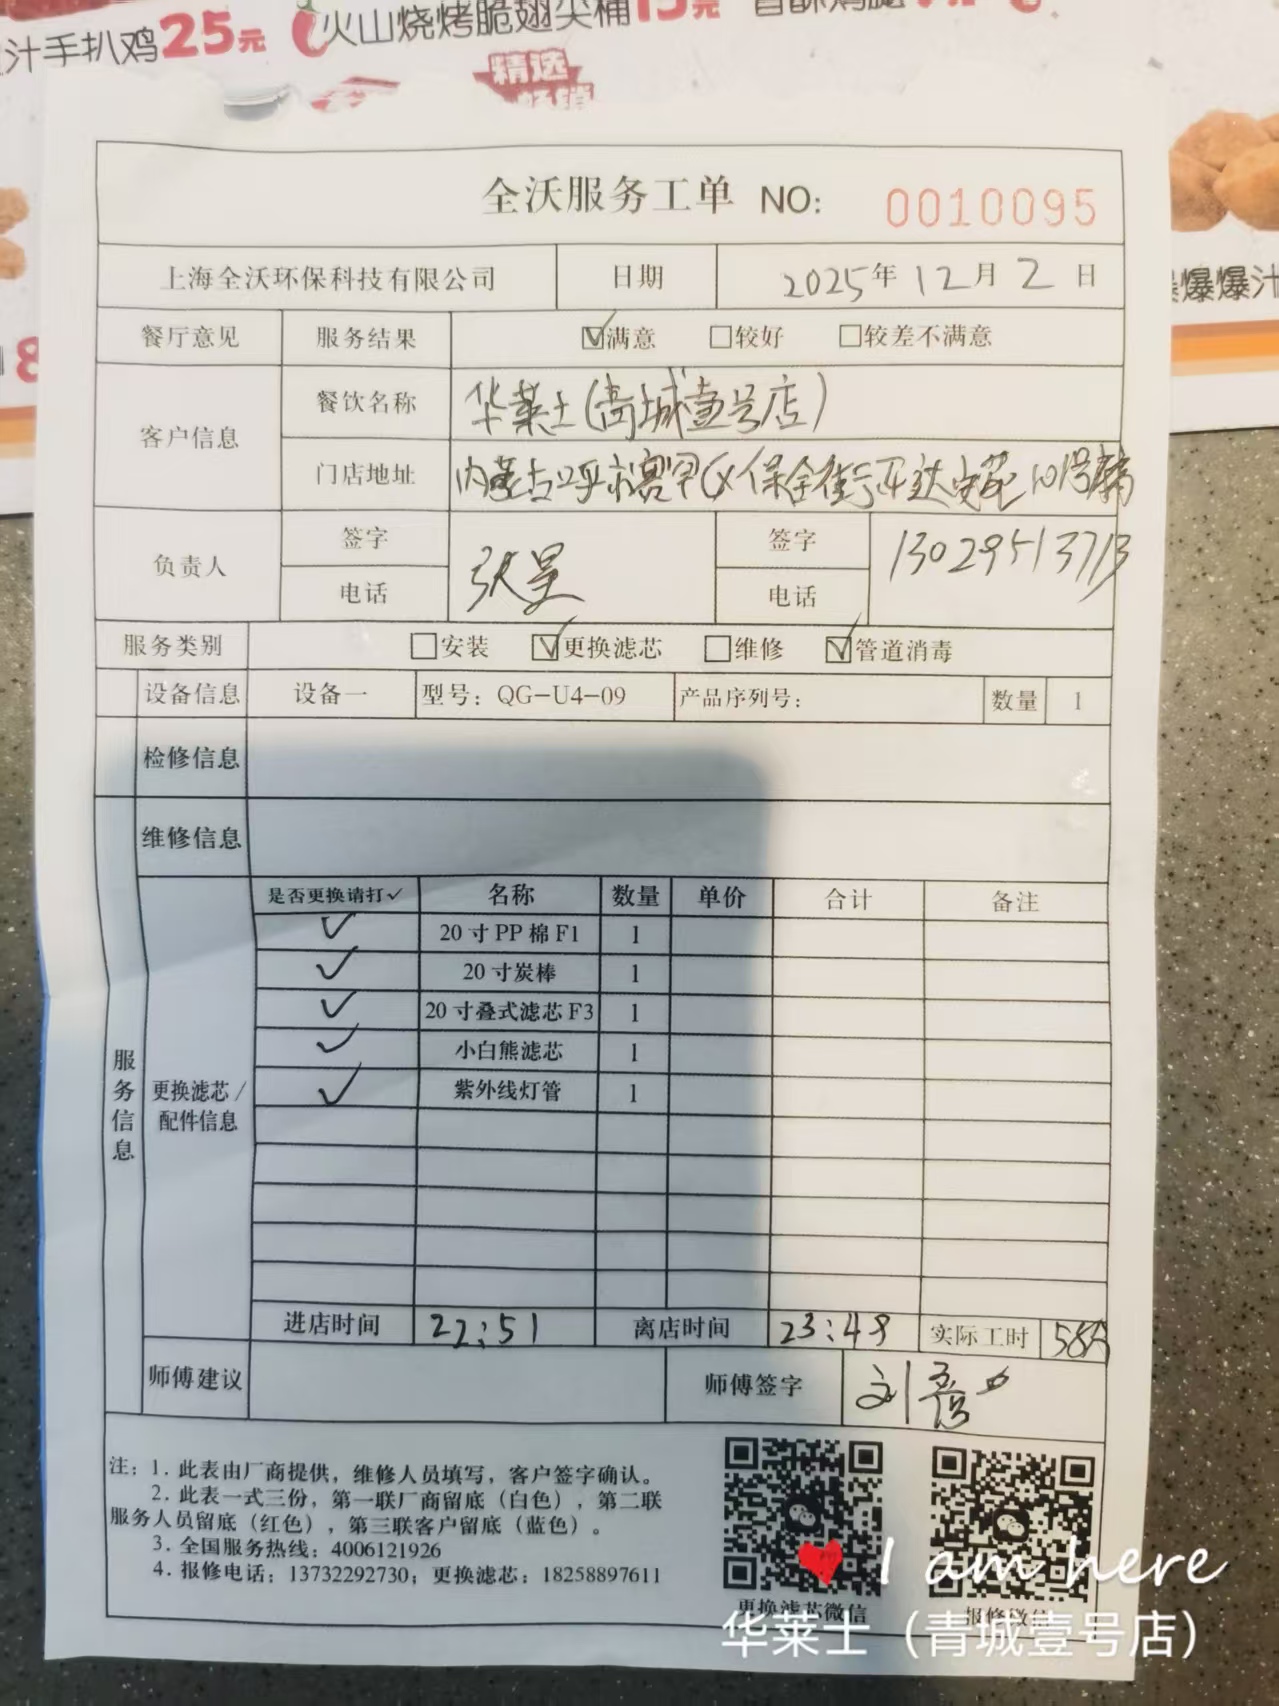 汁手扒鸡25元
火山烧烤脆翅尖桶15元
精选
爆爆汁
全沃服务工单 NO: 0010095
上海全沃环保科技有限公司 日期 2025年12月2日
餐厅意见 服务结果 ☑满意 □较好 □较差不满意
客户信息 餐饮名称 华莱士(青城壹号店)
门店地址 内蒙古呼市赛罕区保全街
负责人 签字 张昊 签字 13029513713
电话 电话
服务类别 □安装 ☑更换滤芯 □维修 ☑管道消毒
设备信息 设备一 型号：QG-U4-09 产品序列号： 数量 1
检修信息
维修信息
服务信息
更换滤芯/配件信息
是否更换请打✓ 名称 数量 单价 合计 备注
✓ 20寸PP棉F1 1
✓ 20寸炭棒 1
✓ 20寸叠式滤芯F3 1
✓ 小白熊滤芯 1
✓ 紫外线灯管 1
进店时间 22:51 离店时间 23:49 实际工时 58
师傅建议 师傅签字
注：1. 此表由厂商提供，维修人员填写，客户签字确认。
2. 此表一式三份，第一联厂商留底（白色），第二联
服务人员留底（红色），第三联客户留底（蓝色）。
3. 全国服务热线：4006121926
4. 报修电话：13732292730；更换滤芯：18258897611
更换滤芯微信 报修微信
I am here
华莱士（青城壹号店）